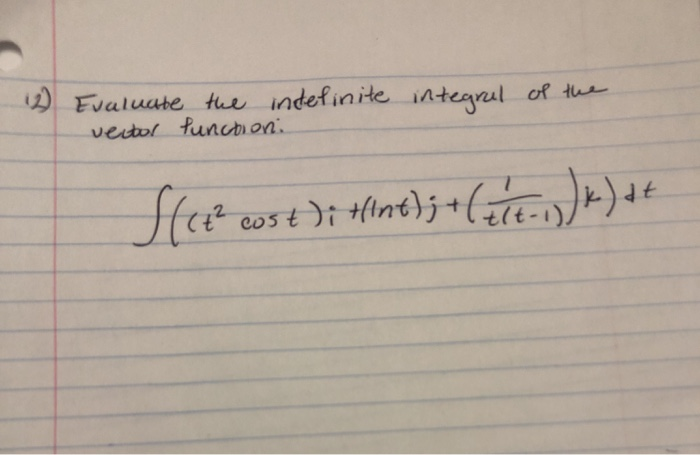 12) Evaluate the indefinite integral of the
vector function:
∫((t² cos t)i + (ln t)j + (1/t(t-1))k) dt